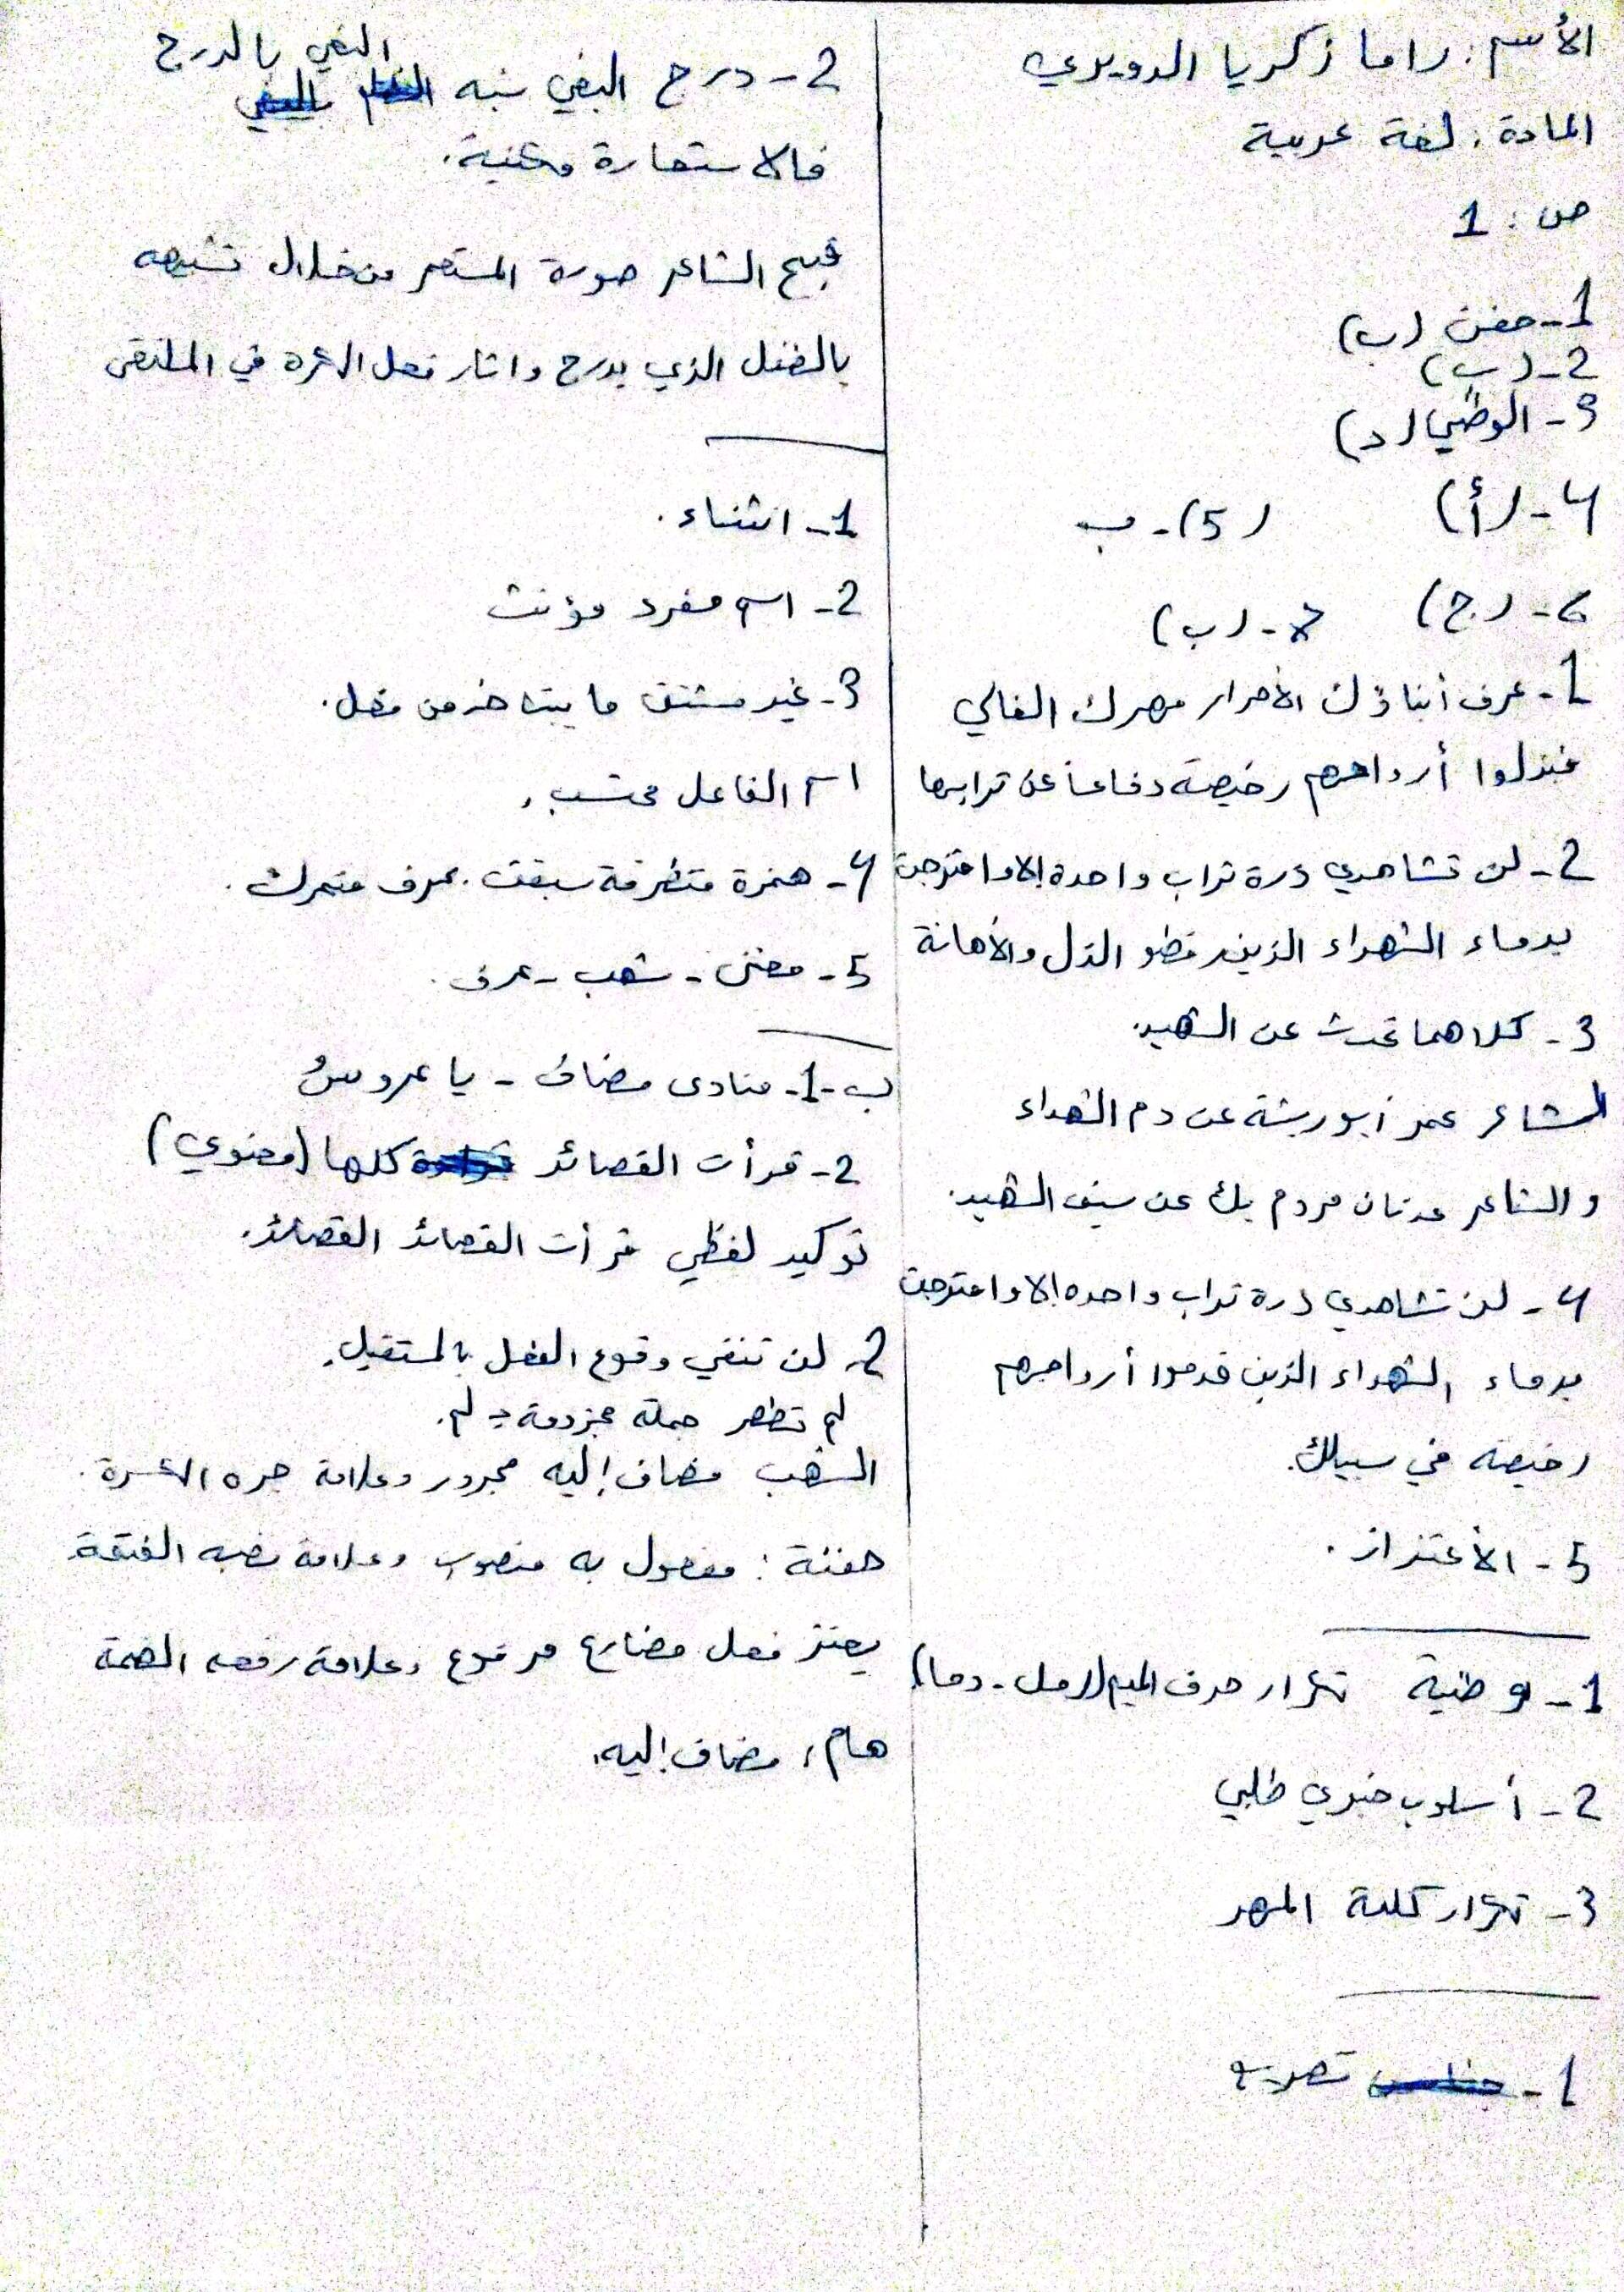 الأسم : راما زكريا الدويري
المادة : لغة عربية
ص : 1
1- حفن (ب)
2- (ب)
3- الوطني (د)
4- (أ) (5)- ب
6- (ج) 7- (ب)
1- عرف أبناؤك الأحرار مهرك الغالي
فبذلوا أرواحهم رخيصة دفاعاً عن ترابها
2- لن تشاهدي ذرة تراب واحدة إلا وامتزجت
بدماء الشهداء الذين رفضو الذل والأهانة
3- كلاهما تحدث عن الشهيد.
الشاعر عمر أبو ريشة عن دم الشهداء
والشاعر عدنان مردم بك عن سيف الشهيد.
4- لن تشاهدي ذرة تراب واحده إلا وامتزجت
بدماء الشهداء الذين قدموا أرواحهم
رخيصة في سبيلك.
5- الأعتزاز .
1- وطنية تكرار حرف الميم (رمل - دما)
2- أسلوب خبري طلبي
3- تكرار كلمة المهر
1- تصريع
2- درج البغي شبه البغي بالدرج
فالاستعارة مكنية.
قبح الشاعر صورة المستعمر من خلال تشبيهه
بالطفل الذي يدرج واثار فعل الكره في المتلقي
1- انثناء .
2- اسم مفرد مؤنث
3- غير مشتق ما يتاخر من فعل.
اسم الفاعل محتسب .
4- همزة متطرفة سبقت بحرف متحرك .
5- مغنى - شهب - عرف .
ب -1- منادى مضاف - يا عروسُ
2- قرأت القصائد كلها (معنوي)
توكيد لفظي قرأت القصائد القصائد.
2- لن تنفي وقوع الفعل بالمستقبل.
لم تظهر جملة مجزومة بـ لم.
الشهب مضاف إليه مجرور وعلامة جره الكسرة .
حفنة : مفعول به منصوب وعلامة نصبه الفتحة.
يعتز فعل مضارع مرفوع وعلامة رفعه الضمة
هام : مضاف إليه.